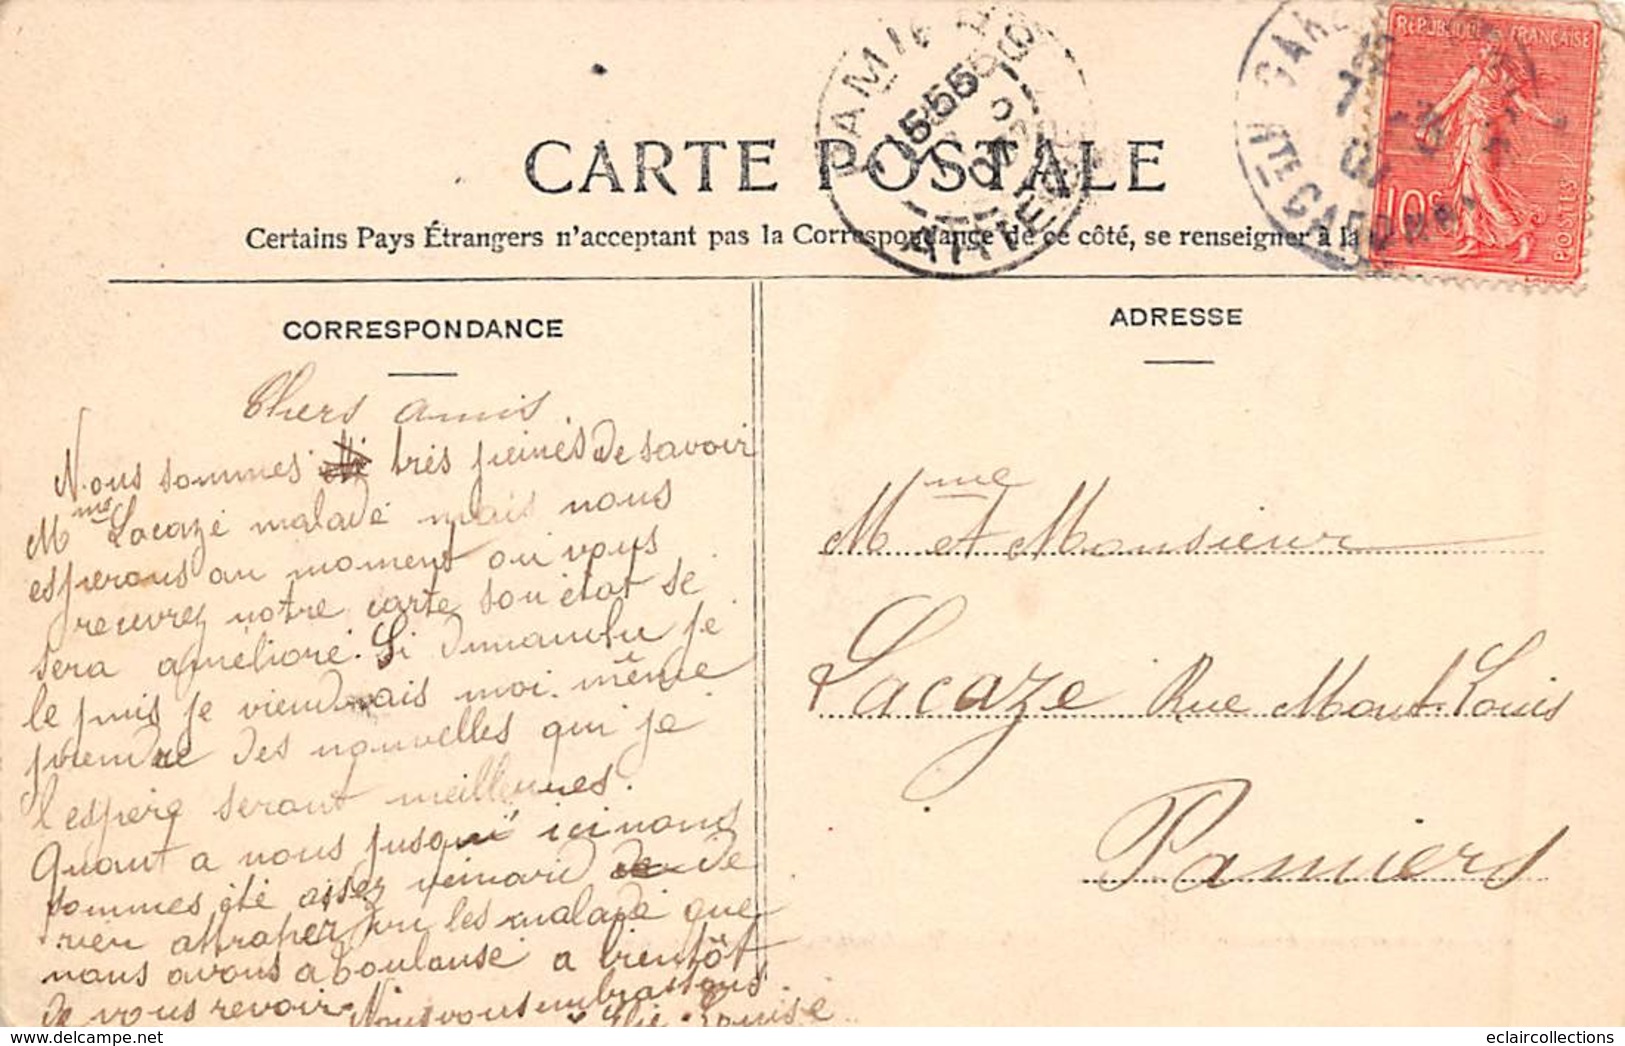 CARTE POSTALE
Certains Pays Étrangers n'acceptant pas la Correspondance de ce côté, se renseigner à la
RÉPUBLIQUE FRANÇAISE
10c
POSTES
PAMIERS
ARIEGE
CORRESPONDANCE
ADRESSE
Chers amis.
Nous sommes très peinés de savoir
Mme Lacaze malade mais nous
esperons au moment ou vous
recevrez notre carte son état se
sera amélioré. Si dimanche je
le puis je viendrais moi-même
prendre des nouvelles que je
l'espère seront meilleures.
Quant a nous jusqu'ici nous
sommes été assez de
rien attraper les malade que
nous avons a Toulouse a bientôt
de vous revoir. Nous vous embrassons.
Louise
Mme et Monsieur
Lacaze Rue Mont-Louis
Pamiers
eclaircollections